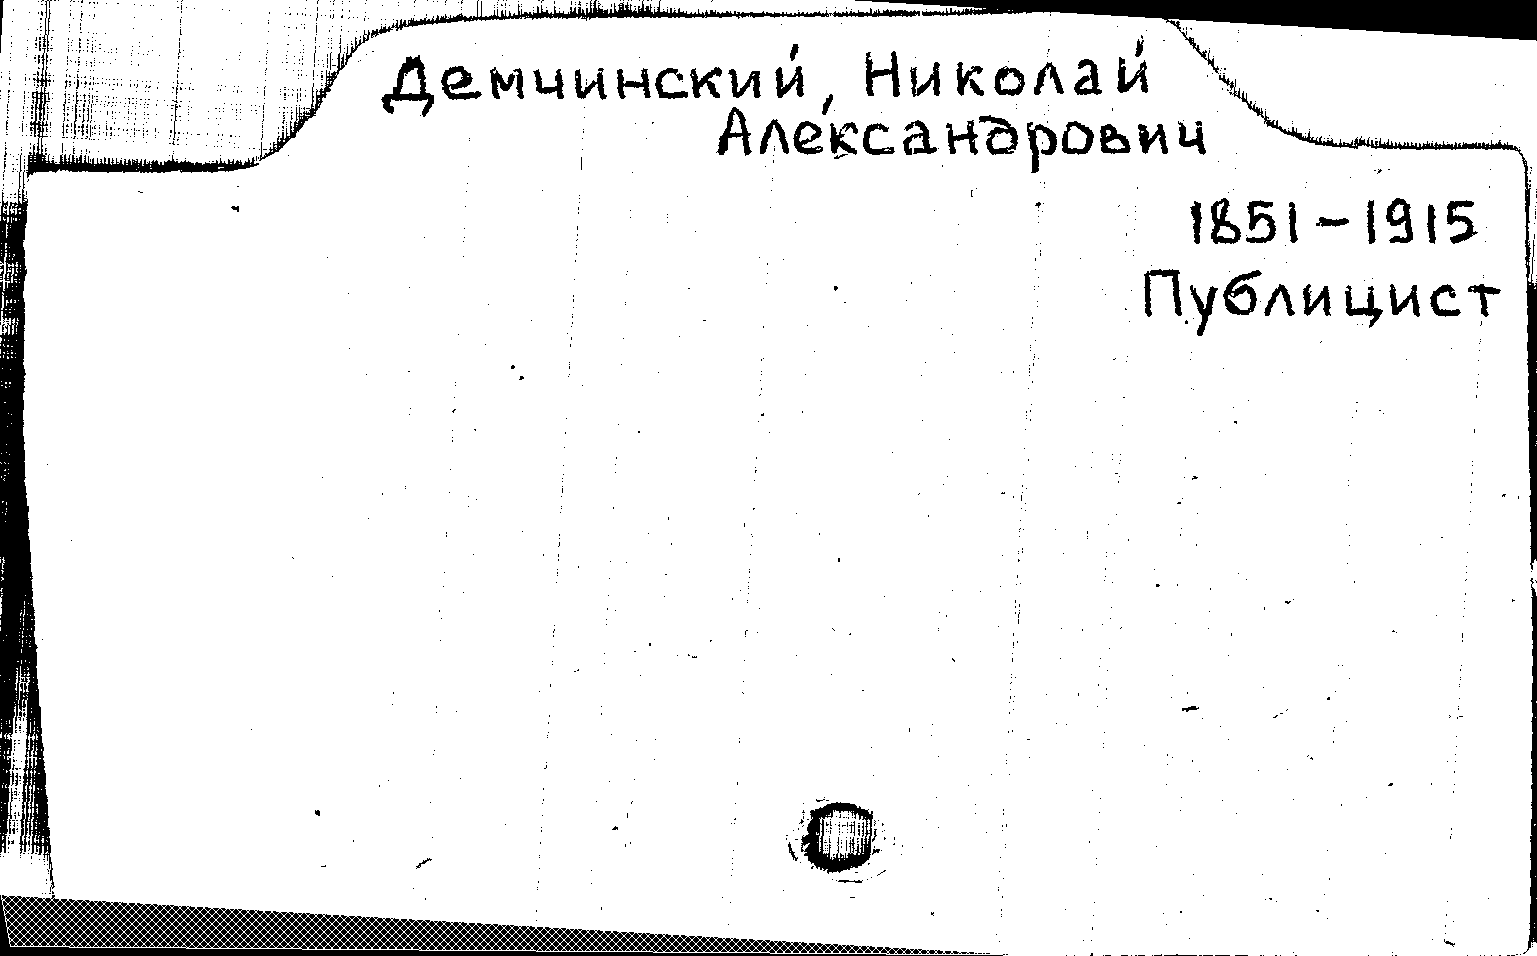 Демчинский, Николай
Александрович
1851-1915
Публицист